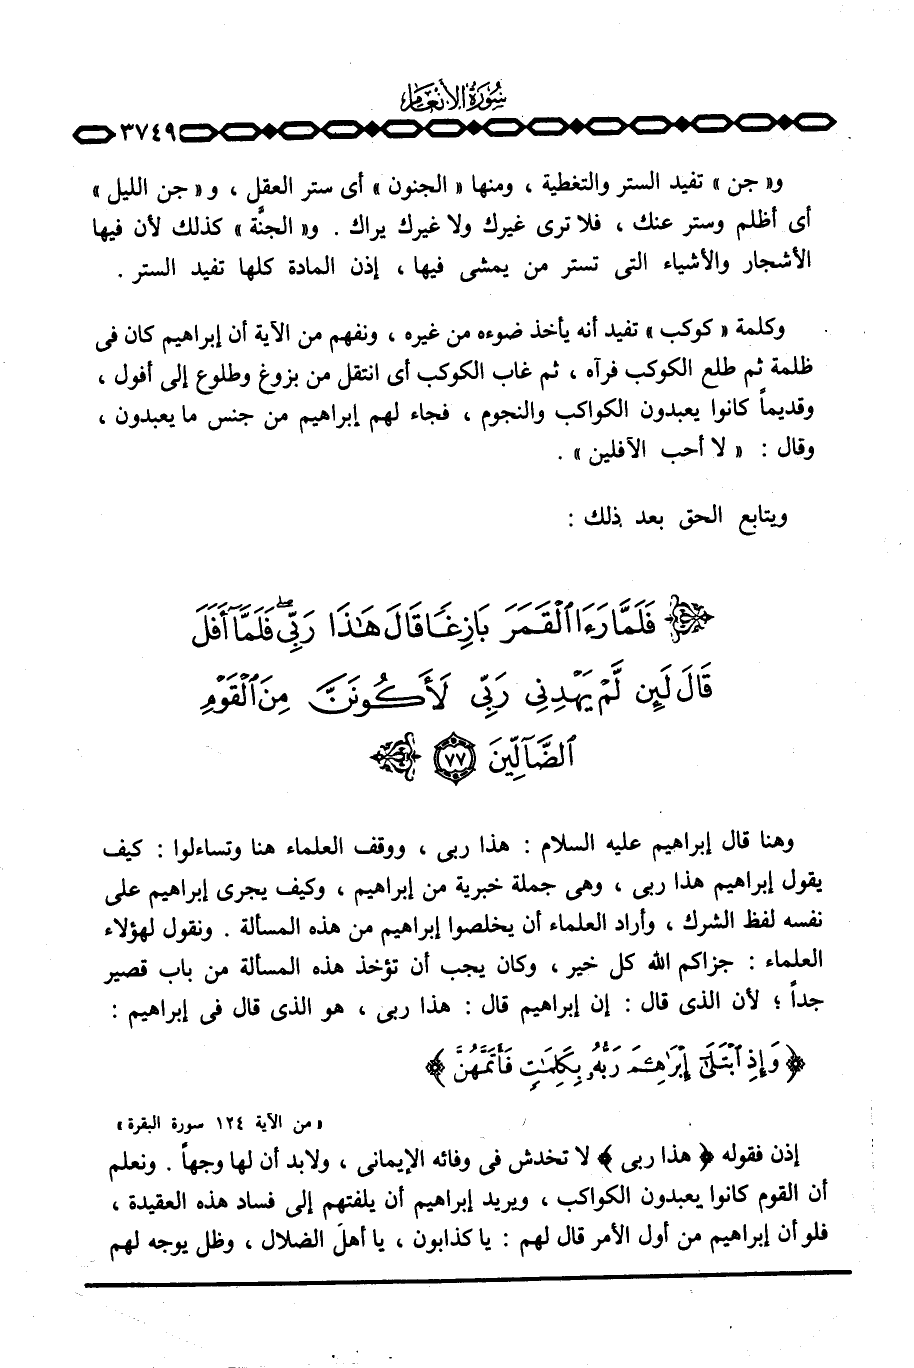 سُورَةُ الأَنْعَام
٣٧٤٩
و« جن » تفيد الستر والتغطية ، ومنها « الجنون » أى ستر العقل ، و « جن الليل »
أى أظلم وستر عنك ، فلا ترى غيرك ولا غيرك يراك . و« الجنَّة » كذلك لأن فيها
الأشجار والأشياء التى تستر من يمشى فيها ، إذن المادة كلها تفيد الستر .
وكلمة « كوكب » تفيد أنه يأخذ ضوءه من غيره ، ونفهم من الآية أن إبراهيم كان فى
ظلمة ثم طلع الكوكب فرآه ، ثم غاب الكوكب أى انتقل من بزوغ وطلوع إلى أفول ،
وقديماً كانوا يعبدون الكواكب والنجوم ، فجاء لهم إبراهيم من جنس ما يعبدون ،
وقال : « لا أحب الآفلين » .
ويتابع الحق بعد ذلك :
﴿ فَلَمَّا رَءَا ٱلْقَمَرَ بَازِغًا قَالَ هَٰذَا رَبِّى ۖ فَلَمَّآ أَفَلَ
قَالَ لَئِن لَّمْ يَهْدِنِى رَبِّى لَأَكُونَنَّ مِنَ ٱلْقَوْمِ
ٱلضَّآلِّينَ ٧٧ ﴾
وهنا قال إبراهيم عليه السلام : هذا ربى ، ووقف العلماء هنا وتساءلوا : كيف
يقول إبراهيم هذا ربى ، وهى جملة خبرية من إبراهيم ، وكيف يجرى إبراهيم على
نفسه لفظ الشرك ، وأراد العلماء أن يخلصوا إبراهيم من هذه المسألة . ونقول لهؤلاء
العلماء : جزاكم الله كل خير ، وكان يجب أن تؤخذ هذه المسألة من باب قصير
جداً ؛ لأن الذى قال : إن إبراهيم قال : هذا ربى ، هو الذى قال فى إبراهيم :
﴿ وَإِذِ ٱبْتَلَىٰٓ إِبْرَٰهِـۧمَ رَبُّهُۥ بِكَلِمَٰتٍ فَأَتَمَّهُنَّ ﴾
« من الآية ١٢٤ سورة البقرة »
إذن فقوله ﴿ هذا ربى ﴾ لا تخدش فى وفائه الإيمانى ، ولابد أن لها وجهاً . ونعلم
أن القوم كانوا يعبدون الكواكب ، ويريد إبراهيم أن يلفتهم إلى فساد هذه العقيدة ،
فلو أن إبراهيم من أول الأمر قال لهم : يا كذابون ، يا أهلَ الضلال ، وظل يوجه لهم